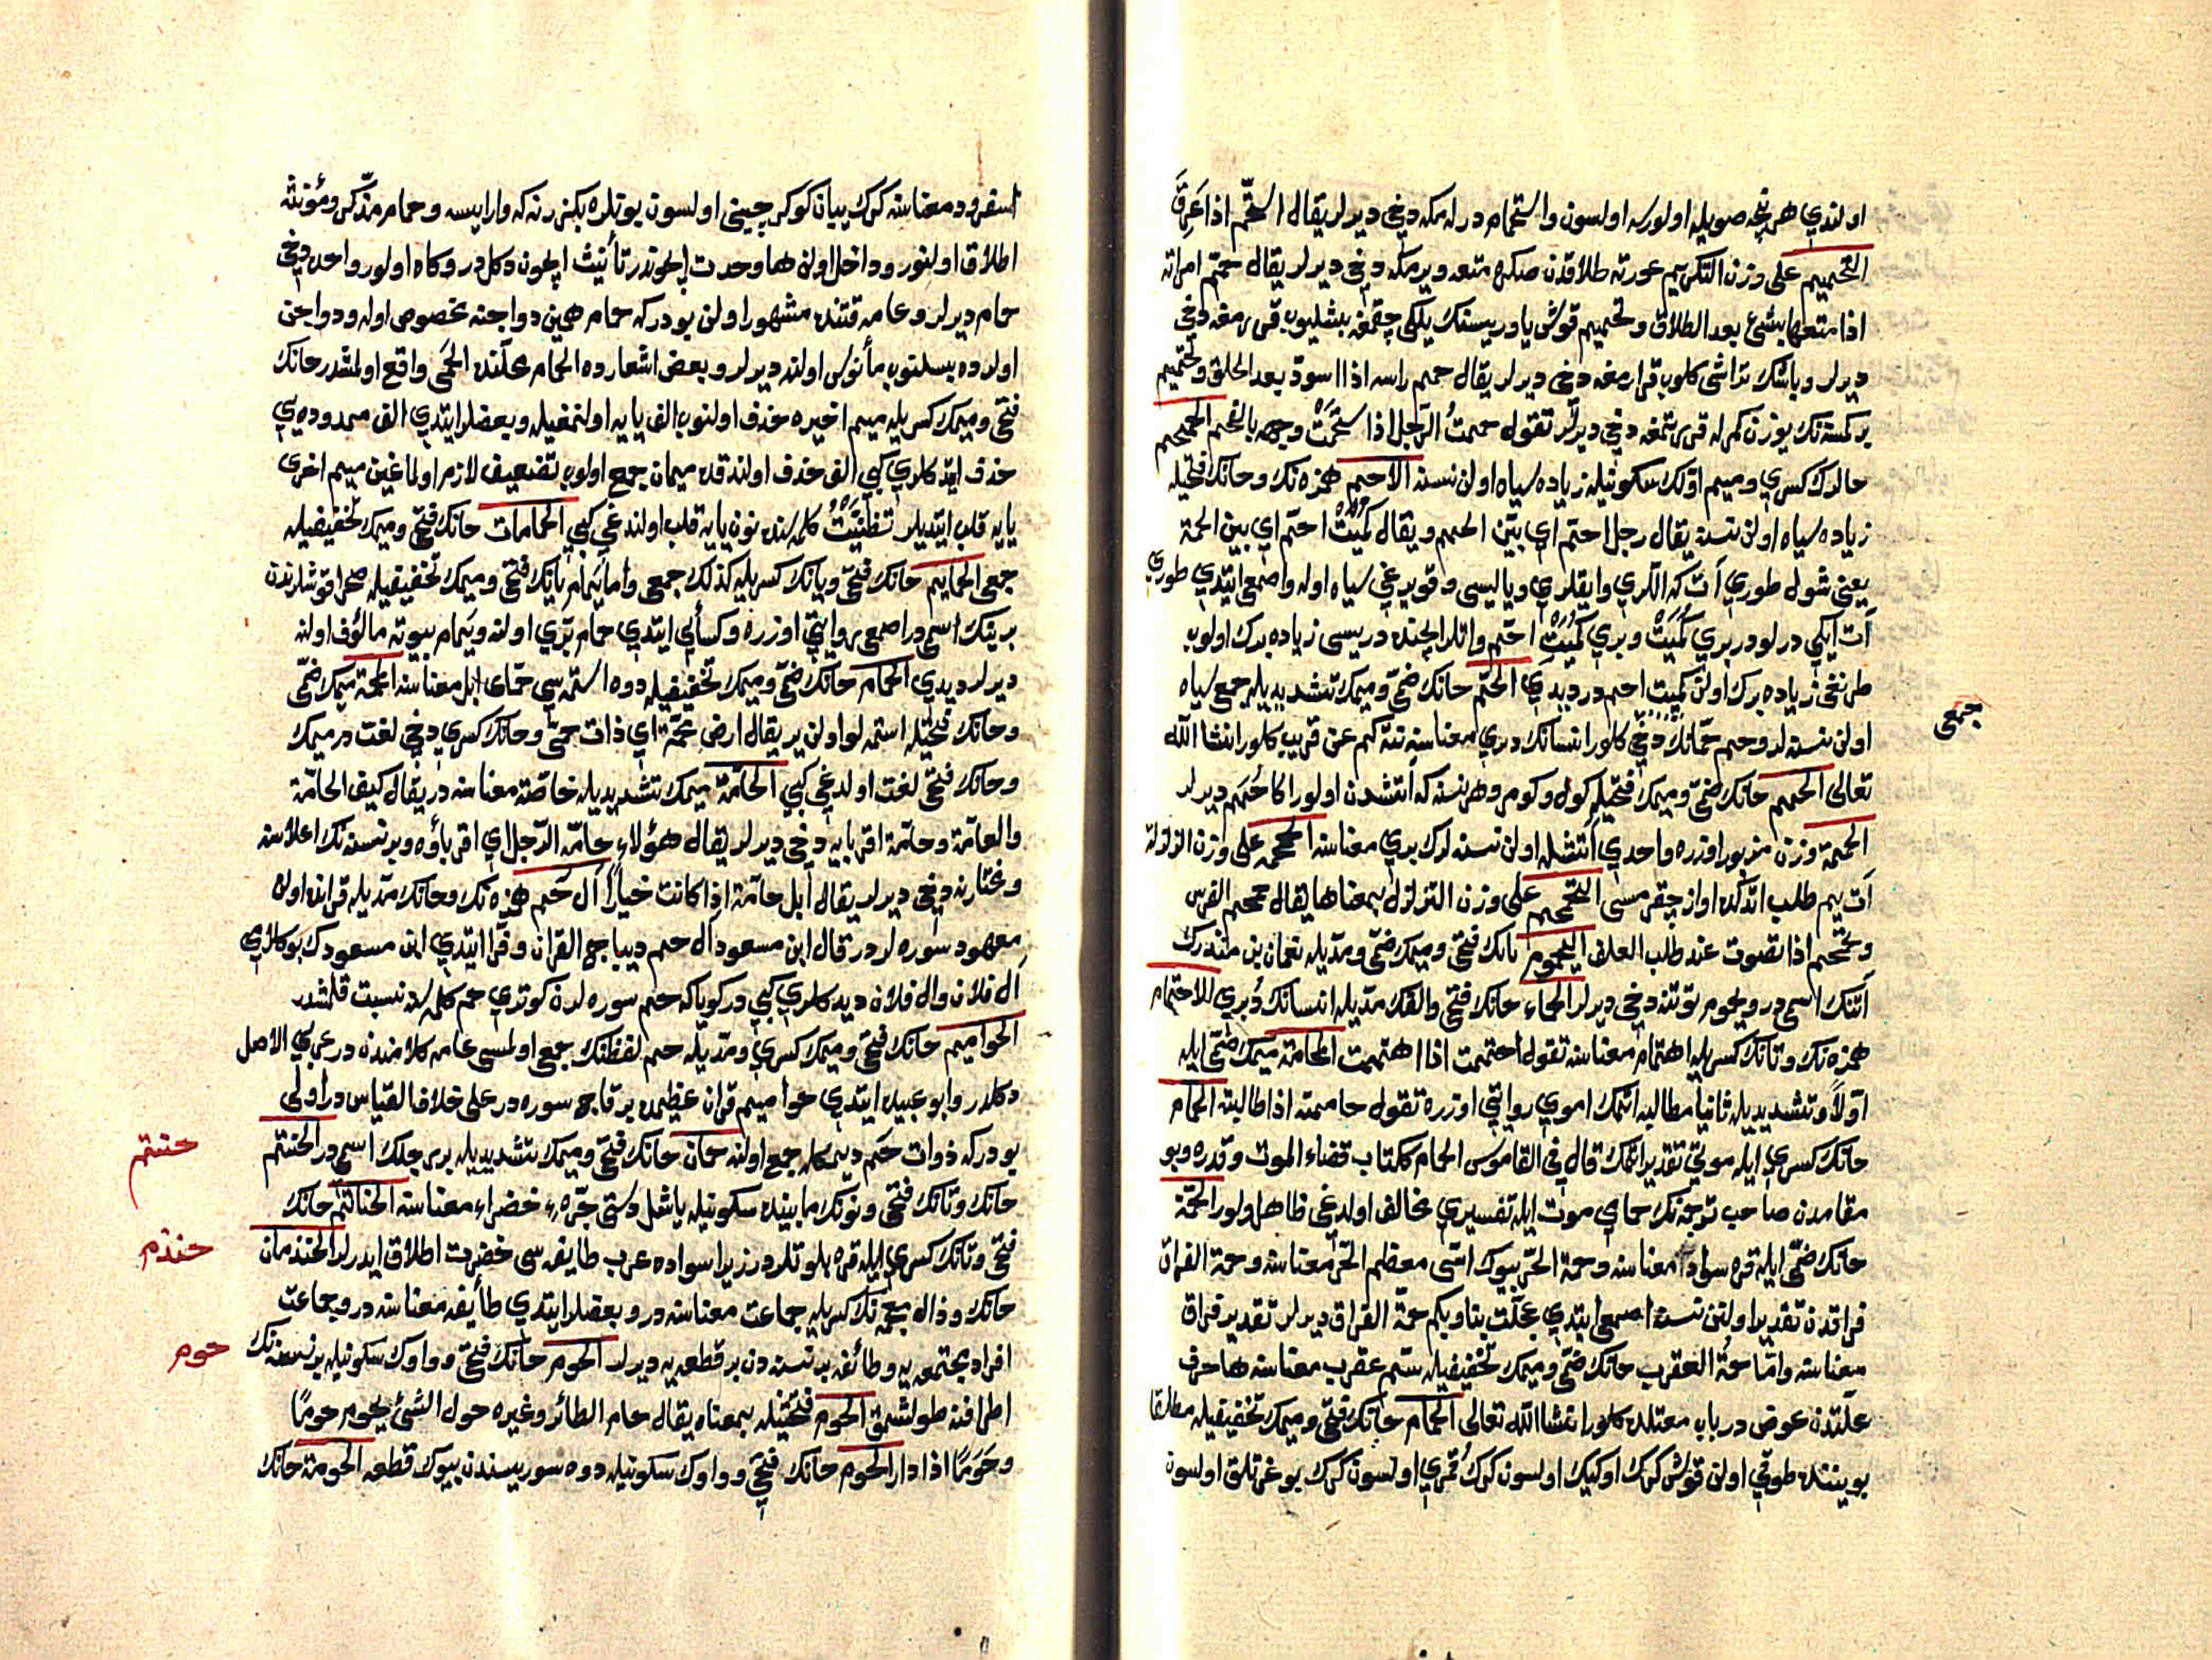 اولندي هر نجه صويله اولورسه اولسون واستحمام درلمكه دخي ديرلر يقال استحم اذا عرق
التحميم على وزن التكريم عورته طلاقدن صكره متعه ويرمكه دخي ديرلر يقال حمم امراته
اذا متعها بشئ بعد الطلاق وتحميم قوش ياوريسنك يلكي چقمغه بشليوب قررمغه دخي
ديرلر وباشك تراشي كلوب قرارمغه دخي ديرلر يقال حمم راسه اذا اسود بعد الحلق وتحميم
بر كمسنه نك يوزن كمرله قررتمغه دخي ديرلر تقول حممت الرجل اذا سخمت وجهه بالفحم الحمحم
حالرك كسري وميم اولك سكونيله زياده سياه اولن نسنه الاحم همزه نك وحانك فتحيله
زياده سياه اولن نسنه يقال رجل احم اي بين الحمم ويقال كميت احم اي بين الحمة
يعني شول طوري آت كه اللري وايقلري وياليسي وقويرغي سياه اوله واصمعي ايتدي طوري
آت ايكي درلودر بري كميت وبري كميت احم واتلر ايچنده دريسي زياده برك اولوب
طرنغي زياده برك اولن كميت احم در ديدي الحم حانك ضمي وميمك تشديديله جمع سياه
اولن نسنه لر وحم حمانك دخي كلور انسانك دبري معناسنه تنه كم عن قريب كلور انشا الله
تعالى الحمم حانك ضمي وميمك فتحيله كول وكومر وهر نسنه كه آتشدن اولور اكا حمم ديرلر
الحممة وزن مزبور اوزره واحدي آتشله اولن نسنه لرك بري معناسنه الحمحمه على وزن الزلزلة
آت يم طلب اتدكده اواز چقرمسي التحمحم على وزن التزلزل بمعناها يقال حمحم الفرس
وتحمحم اذا تصوت عند طلب العلف اليحموم يانك فتحي وميمك ضمي ومديله نعمان بن منذرك
آتنك اسمي در ويحموم توتنه دخي ديرلر الحماء حانك فتحي والفك مديله انسانك دبري الاحتمام
همزه نك وتانك كسريله اهتمام معناسنه تقول احتممت اذا اهتممت المحامة ميمك ضمي ايله
اولا وتشديديله ثانيا مطالبه اتمك اموي روايتي اوزره تقول حاممته اذا طالبته الحمام
حانك كسري ايله موتي تقدير اتمك قال في القاموس الحمام ككتاب قضاء الموت وقدره وبو
مقامدن صاحب ترجمه نك حماي موت ايله تفسيري مخالف اولدغي ظاهر اولور الحمة
حانك ضمي ايله قره سواد معناسنه وحمة الحر بيوك استي معظم الحر معناسنه وحمة الفراق
فراقدن تقدير اولنن نسنه اصمعي ايتدي عجلت بنا وبكم حمة الفراق ديرلر تقدير فراق
معناسنه واما حمة العقرب حانك ضمي وميمك تخفيفيله سم عقرب معناسنه ها حرف
علتدن عوض در باب معتلده كلور انشا الله تعالى الحمام حانك فتحي وميمك تخفيفيله مطلقا
بوينده طوقي اولن قوش كرك اوكيك اولسون كرك قمري اولسون كرك بوغرتلق اولسون
جمعي
اسفرود معناسنه كرك ييان كوكرچيني اولسون بوتلره بكزر نه كه وارايسه وحمام مذكر ومؤنثه
اطلاق اولنور وداخل اولن ها وحدت ايچوندر تأنيث ايچون دكلدر وكاه اولور واحده دخي
حمام ديرلر وعامه قتنده مشهور اولن بودركه حمام همين دواجنه مخصوص اوله ودواجن
اولرده بسلنوب مأنوس اولنه ديرلر وبعض اشعارده الحمام محلنده الحمى واقع اولمشدر حانك
فتحي وميمك كسريله ميم اخيره حذف اولنوب الف يايه اولنمغيله وبعضلر ايتدي الف ممدوده يي
حذف ايتدكلري كبي الف حذف اولندقده ميمان جمع اولوب تضعيف لازم اولماغين ميم اخرى
يايه قلب ايتديلر تظنيت كلمه سنده نون يايه قلب اولندغي كبي الحمامات حانك فتحي وميمك تخفيفيله
جمعي الحمايم حانك فتحي ويانك كسريله كذلك جمعي واما يمام يانك فتحي وميمك تخفيفيله صحرا قوشلرندن
برينك اسمي در اصمعي روايتي اوزره وكسائي ايتدي حمام بري اولنه ويمام بيوته مالؤف اولنه
ديرلر ديدي الحمام حانك ضمي وميمك تخفيفيله دوه استمه سي حماى ابل معناسنه المحمة ميمك ضمي
وحانك فتحيله استمه لو اولن ير يقال ارض محمة اي ذات حمى وحانك كسري دخي لغت در ميمك
وحانك فتحي لغت اولدغي كبي الحامة ميمك تشديديله خاصة معناسنه در يقال كيف الحامة
والعامة وحامة اقربايه دخي ديرلر يقال هؤلاء حامة الرجل اي اقرباؤه وبر نسنه نك اعلاسنه
ومختارنه دخي ديرلر يقال ابل حامة اذا كانت خيارا آل حم همزه نك وحانك مديله قرانده اولن
معهود سوره لر در قال ابن مسعود آل حم ديباج القران وفرا ايتدي ابن مسعودك بوكلامي
آل فلان وال فلان ديدكلري كبي در كوياكه حم سوره لرن كوتردي حم كلمه سنه نسبت قلمشدر
الحواميم حانك فتحي وميمك كسري ومديله حم لفظنك جمعي اولمسي عامه كلامندن در عربي الاصل
دكلدر وابو عبيده ايتدي حواميم قران عظيمده برقاج سوره در على خلاف القياس در اولى
بودركه ذوات حم ديمكله جمع اولنه حمان حانك فتحي وميمك تشديديله بر رجلك اسمي در الحنتم
حانك وتانك فتحي ونونك مابينده سكونيله ياشل دستي جره ء خضراء معناسنه الحناتم حانك
فتحي وتانك كسري ايله قره بلوتلردر زيرا سواده عرب طايفه سي خضرت اطلاق ايدرلر الحنذمان
حانك وذال معجمه نك كسريله جماعت معناسنه در وبعضلر ايتدي طأيفه معناسنه در وجماعت
افراد مجتمعه يه وطائفه بر نسنه دن بر قطعه يه ديرلر الحوم حانك فتحي وواوك سكونيله بر نسنه نك
اطرافنه طولشمق الحوم فتحتيله بمعناه يقال حام الطائر وغيره حول الشئ يحوم حوما
وحوما اذا دار الحوم حانك فتحي وواوك سكونيله دوه سوريسندن بيوك قطعه الحومة حانك
حنتم
حنذم
حوم